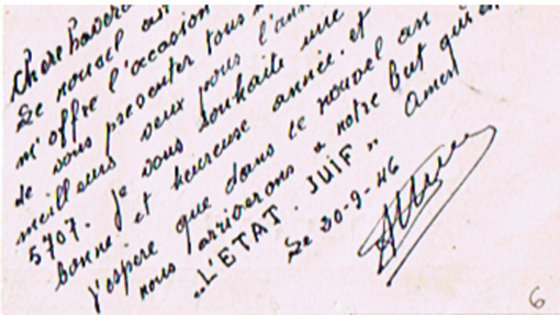 Chère haverà
Le nouvel an
m'offre l'occasion
de vous presenter tous
meilleurs veux pour l'ann
5707. Je vous souhaite une
bonne et heureuse année. et
j'espère que dans ce nouvel an
nous arriverons a notre but qui e
„L'ETAT. JUIF„ Amen
Le 20-9-46
6